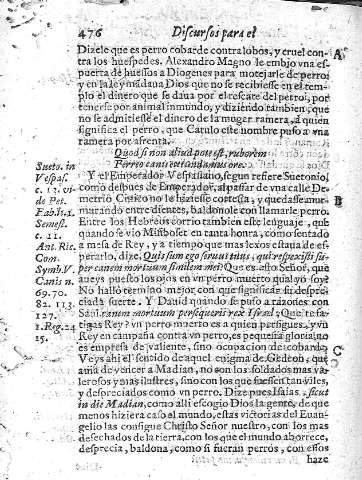 476 Discursos para el
Dizele que es perro cobarde contra lobos, y cruel con-
tra los huespedes. Alexandro Magno le embio vna es-
puerta de huessos a Diogenes para motejarle de perro:
y en la ley mãdaua Dios que no se recibiesse en el tem-
plo el dinero que se daua por el rescate del perro, por
tenerse por animal inmundo, y diziendo tambien, que
no se admitiesse el dinero de la muger ramera, a quien
significa el perro, que Catulo este nombre puso a vna
ramera por afrenta.
Quod si non aliud potest, ruborem
Ferreo canis
Y el Emperador Vespasiano, segun refiere Suetonio,
como despues de Emperador, al passar de vna calle De-
metrio Cinico no le hiziesse cortesia, y quedasse mur-
murando entre dientes, baldonole con llamarle perro.
Entre los Hebreos corrio tambien este lenguaje, que
quando se vio Misiboset en tanta honra, como sentado
a mesa de Rey, y a tiempo que mas lexos estaua de es-
perarlo, dize, Quis sum ego seruus tuus, quia respexisti su-
per canem mortuum similem mei? Que es esto Señor, que
aueys puesto los ojos en vn perro muerto qual yo soy?
No hallò termino mejor con que significar su despre-
ciada suerte. Y Dauid quando se puso a razones con
Saul: canem mortuum persequeris rex Israel? Que te fa-
tigas Rey? vn perro muerto es a quien persigues, y vn
Rey en campaña contra vn perro, es pequeña gloria, no
es empresa de valiente, sino ocupacion de cobarde.
Veys ahi el sentido de aquel enigma de Gedeon, que
auia de vencer a Madian, no son los soldados mas va-
lerosos y mas ilustres, sino con los que fuessen tan viles,
y despreciados como vn perro. Dize pues Isaias, sicut
in die Madian, como alli escogio Dios la gente, de que
menos hiziera caso el mundo, estas victorias del Euan-
gelio las consigue Christo Señor nuestro, con los mas
desechados de la tierra, con los que el mundo aborrece,
desprecia, baldona, como si fueran perros, con essos
haze
A
B
C
Sueto. in
Vespas.
c. 13. vi-
de Pet.
Fab. li. 1.
Semest.
c. 11.
Ant. Ric.
Com.
Symb. V.
Canis n.
69. 70.
82. 113.
127.
1. Reg. 24
15.